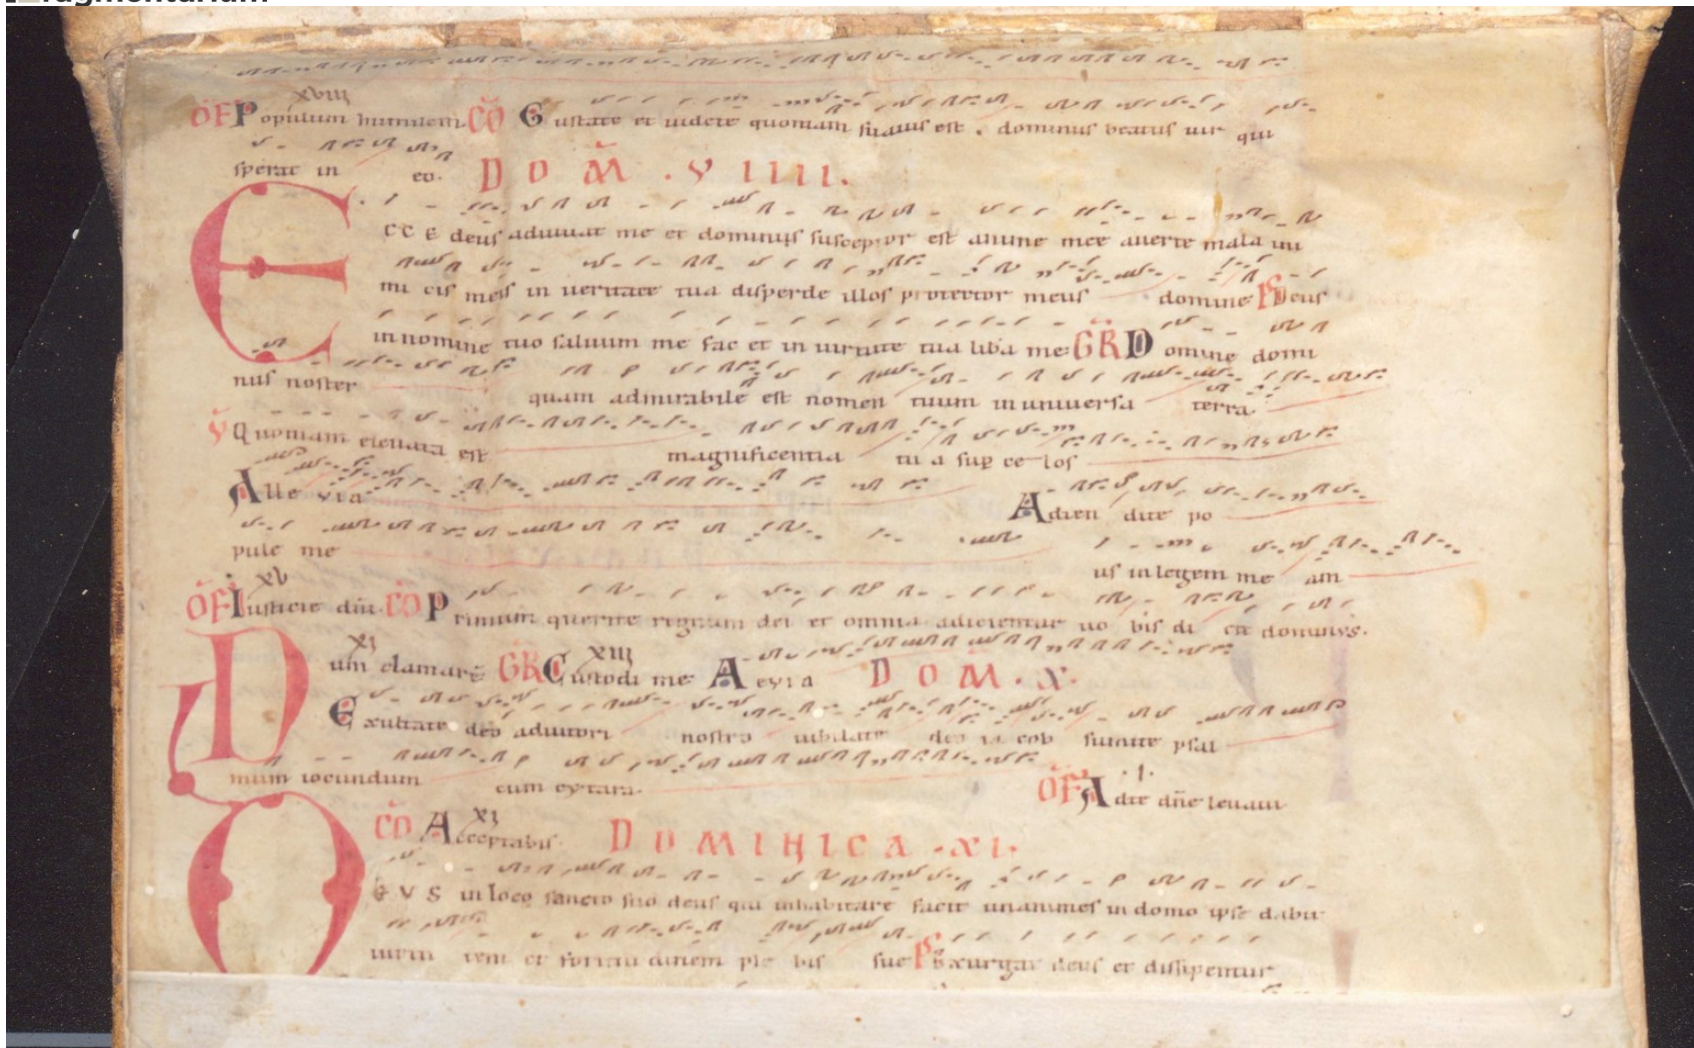 fragmentarium
xviii
OF Populum humilem CO Gustate et uidete quoniam suauis est . dominus beatus uir qui
sperat in eo. DOM .VIIII.
ECCE deus adiuuat me et dominus susceptor est anime mee auerte mala ini
mi cis meis in ueritate tua disperde illos protector meus domine PS Deus
in nomine tuo saluum me fac et in uirtute tua liba me GR Domine domi
nus noster quam admirabile est nomen tuum in uniuersa terra
V Quoniam eleuata est magnificentia tu a sup ce los
Alle uia Adten dite po
pule me us in legem me am
xv
OF Iusticie dni CO Primum querite regnum dei et omnia adicientur uo bis di cit dominus.
xi xiii
Dum clamare GR Custodi me A euia DOM . X.
Exultate deo adiutori nostro iubilate deo ia cob sumite psal
mum iocundum cum cytara. OF Ad te dne leuaui
.I.
xi
CO Acceptabis DOMINICA .XI.
DEVS in loco sancto suo deus qui inhabitare facit unanimes in domo ipse dabit
uirtu tem et fortitu dinem ple bis sue PS Exurgat deus et dissipentur